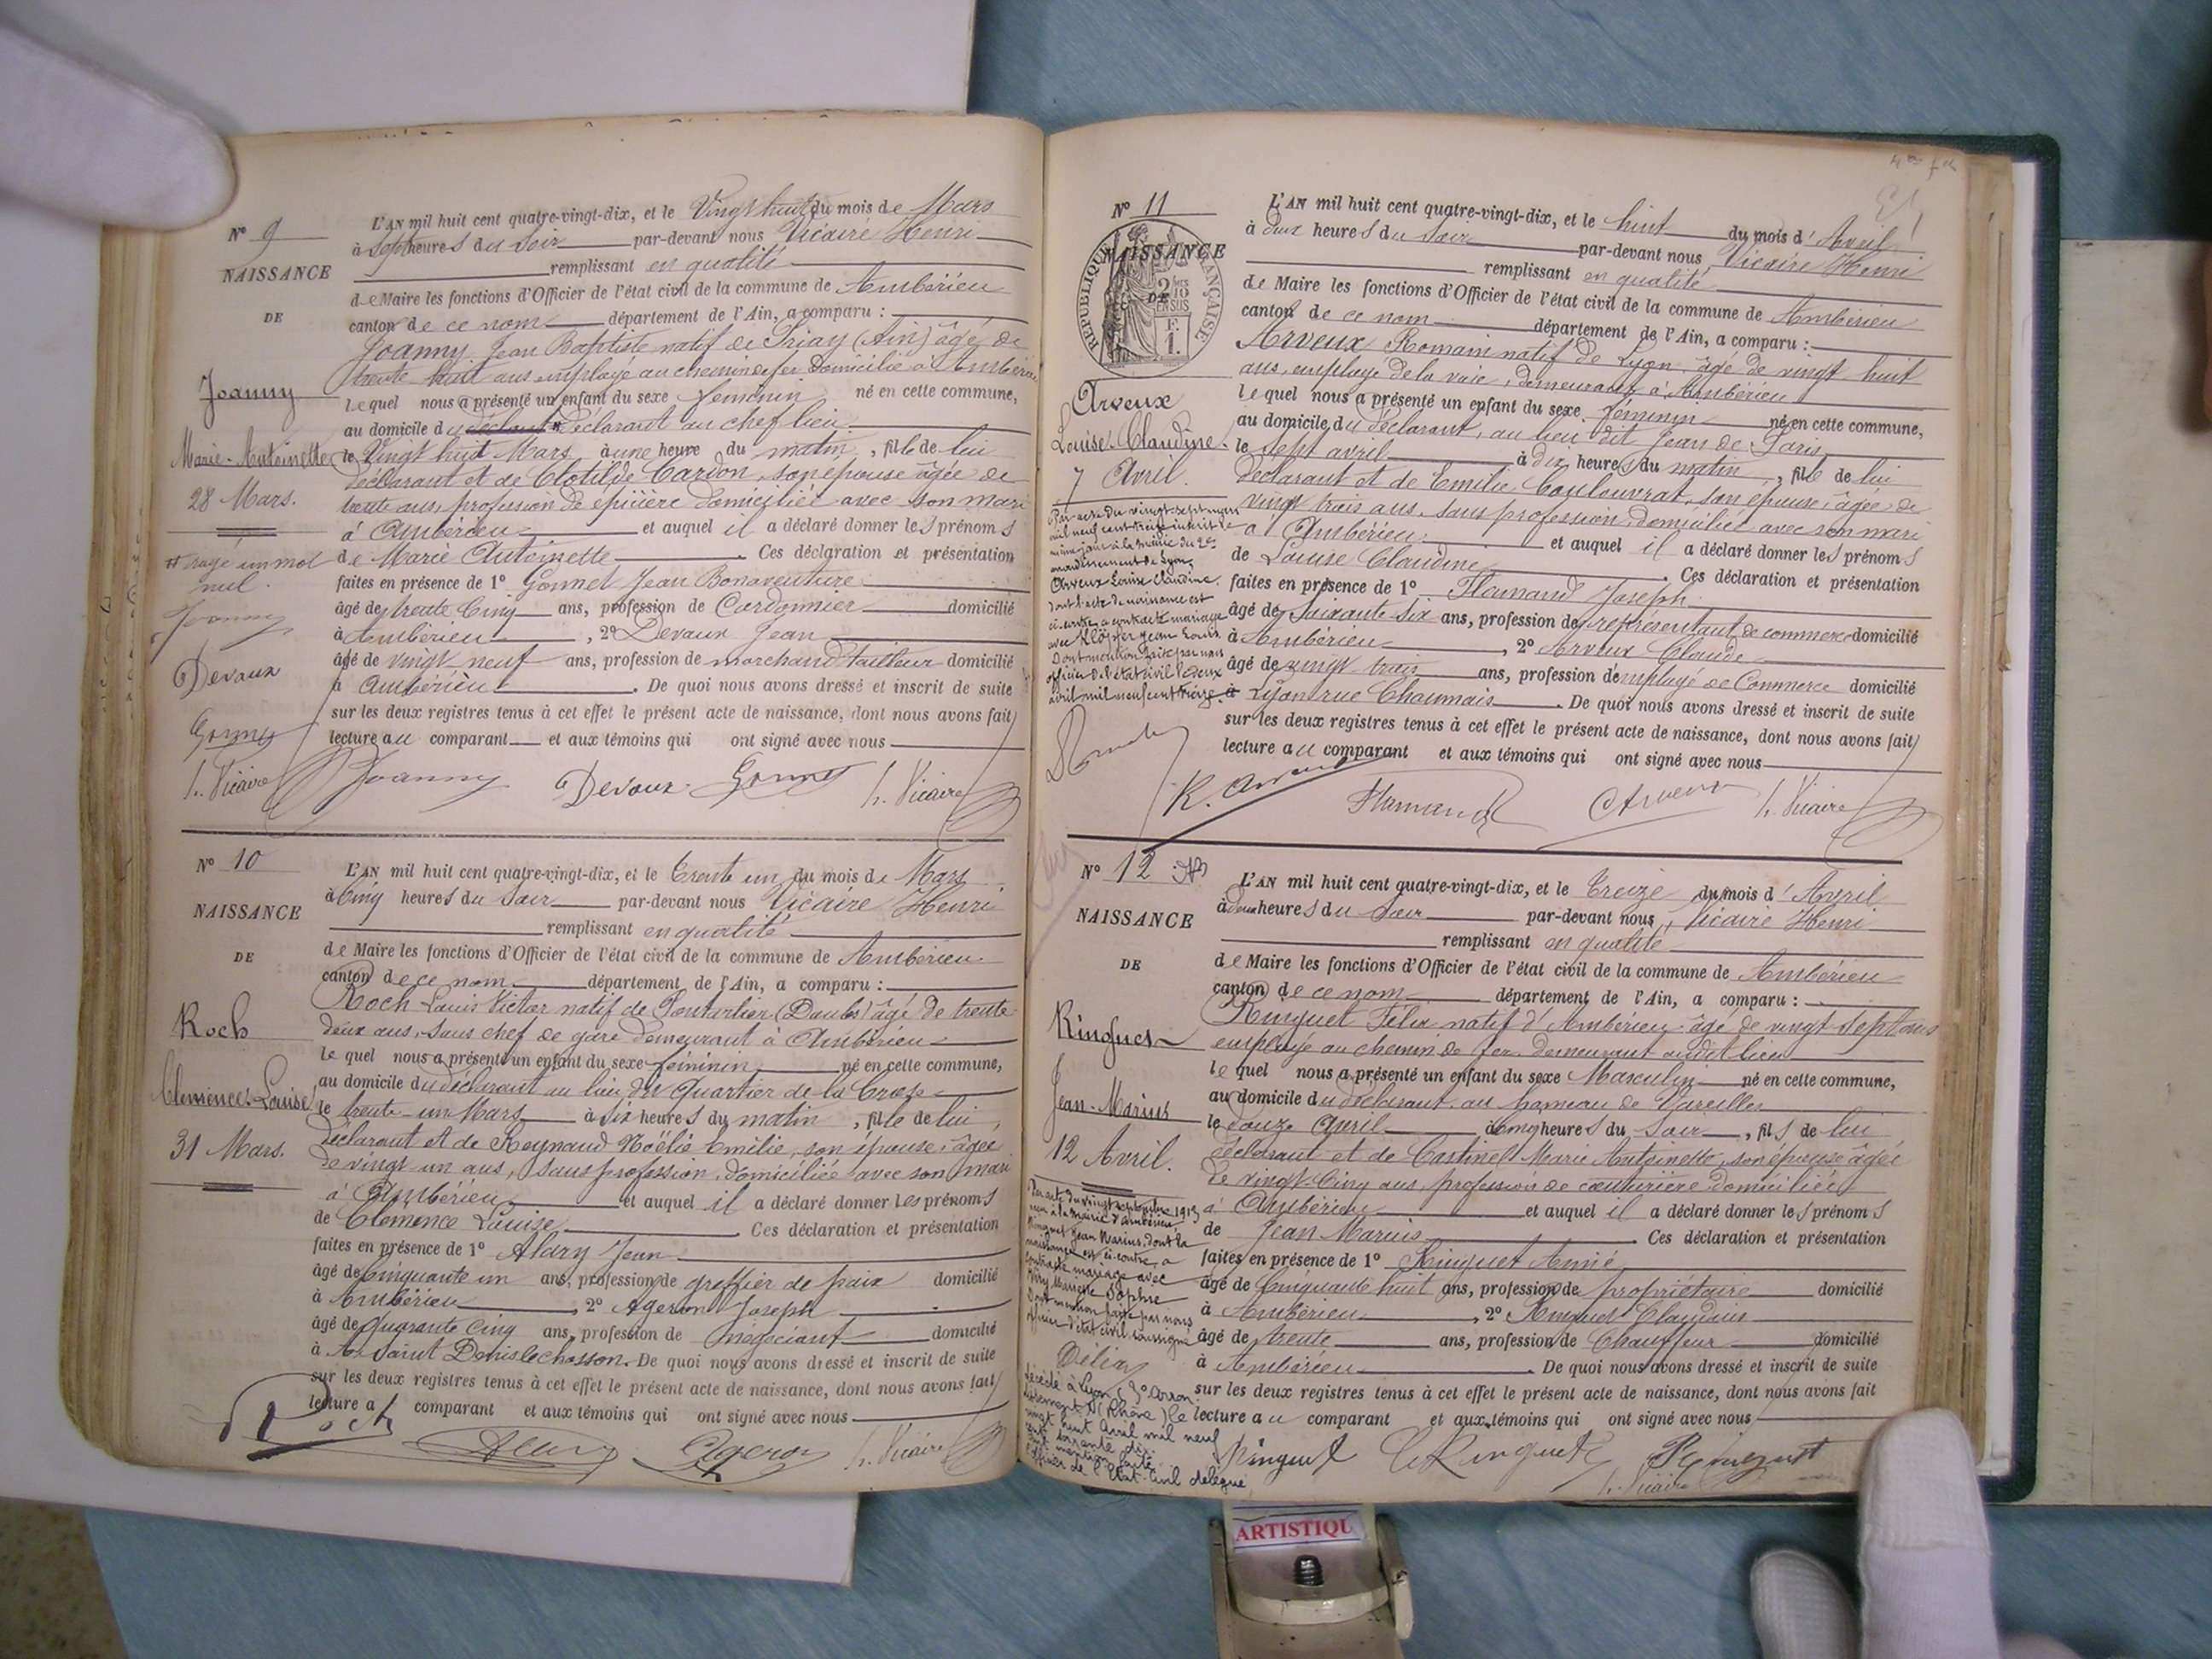 Nº 9
NAISSANCE
DE
Joanny
Marie-Antoinette
28 Mars.
rayé un mot
nul.
Joanny
Devaux
Gonnet
h. Vicaire
L'AN mil huit cent quatre-vingt-dix, et le Vingt huit du mois de Mars
à Sept heures du soir par-devant nous Vicaire Henri
remplissant en qualité
de Maire les fonctions d'Officier de l'état civil de la commune de Ambérieu
canton de ce nom département de l'Ain, a comparu :
Joanny Jean Baptiste natif de Priay (Ain) âgé de
trente huit ans employé au chemin de fer domicilié à Ambérieu
lequel nous a présenté un enfant du sexe féminin né en cette commune,
au domicile du déclarant au chef lieu
le Vingt huit Mars à une heure du matin, fille de lui
déclarant et de Clotilde Cardon, son épouse âgée de
trente ans, profession de épicière domiciliée avec son mari
à Ambérieu et auquel il a déclaré donner les prénoms
de Marie Antoinette. Ces déclaration et présentation
faites en présence de 1º Gonnet Jean Bonaventure
âgé de trente Cinq ans, profession de Cordonnier domicilié
à Ambérieu, 2º Devaux Jean
âgé de vingt neuf ans, profession de marchand tailleur domicilié
à Ambérieu. De quoi nous avons dressé et inscrit de suite
sur les deux registres tenus à cet effet le présent acte de naissance, dont nous avons fait
lecture au comparant et aux témoins qui ont signé avec nous
Joanny Devaux Gonnet h. Vicaire
Nº 10
NAISSANCE
DE
Roch
Clemence-Louise
31 Mars.
L'AN mil huit cent quatre-vingt-dix, et le trente un du mois de Mars
à Cinq heures du soir par-devant nous Vicaire Henri
remplissant en qualité
de Maire les fonctions d'Officier de l'état civil de la commune de Ambérieu
canton de ce nom département de l'Ain, a comparu :
Roch Louis Victor natif de Pontarlier (Doubs) âgé de trente
deux ans, sous chef de gare demeurant à Ambérieu
lequel nous a présenté un enfant du sexe féminin né en cette commune,
au domicile du déclarant au lieu dit Quartier de la Croze
le trente-un Mars à six heures du matin, fille de lui
déclarant et de Reynaud Noëlis Emilie, son épouse, âgée
de vingt un ans, sans profession, domiciliée avec son mari
à Ambérieu et auquel il a déclaré donner les prénoms
de Clémence Louise. Ces déclaration et présentation
faites en présence de 1º Alary Jean
âgé de Cinquante un ans, profession de greffier de paix domicilié
à Ambérieu, 2º Ageron Joseph
âgé de quarante Cinq ans, profession de négociant domicilié
à Saint Denis le chosson. De quoi nous avons dressé et inscrit de suite
sur les deux registres tenus à cet effet le présent acte de naissance, dont nous avons fait
lecture a comparant et aux témoins qui ont signé avec nous
Roch Alary Ageron h. Vicaire
Nº 11
NAISSANCE
DE
RÉPUBLIQUE FRANÇAISE
Arveux
Louise Claudine.
7 Avril.
Par acte du vingt-sept mars
mil neuf cent treize inscrit le
même jour à la mairie du 2e
arrondissement de Lyon,
Arveux Louise Claudine,
dont l'acte de naissance est
ci-contre a contracté mariage
avec Klopfer Jean Louis.
Dont mention faite par nous
officier de l'état civil le deux
avril mil neuf cent treize.
L'AN mil huit cent quatre-vingt-dix, et le huit du mois d'Avril
à deux heures du soir par-devant nous Vicaire Henri
remplissant en qualité
de Maire les fonctions d'Officier de l'état civil de la commune de Ambérieu
canton de ce nom département de l'Ain, a comparu :
Arveux Romain natif de Lyon, âgé de vingt huit
ans, employé de la voie, demeurant à Ambérieu
lequel nous a présenté un enfant du sexe féminin né en cette commune,
au domicile du déclarant, au lieu dit Jean de Paris
le sept avril à dix heures du matin, fille de lui
déclarant et de Emilie Coulouvrat, son épouse, âgée de
vingt trois ans, sans profession, domiciliée avec son mari
à Ambérieu et auquel il a déclaré donner les prénoms
de Louise Claudine. Ces déclaration et présentation
faites en présence de 1º Flamand Joseph
âgé de soixante six ans, profession de représentant de commerce domicilié
à Ambérieu, 2º Arveux Claude
âgé de vingt trois ans, profession d'employé de Commerce domicilié
à Lyon rue Chaumais. De quoi nous avons dressé et inscrit de suite
sur les deux registres tenus à cet effet le présent acte de naissance, dont nous avons fait
lecture au comparant et aux témoins qui ont signé avec nous
R. Arveux Flamand C Arveux h. Vicaire
Nº 12
NAISSANCE
DE
Ringuet
Jean-Marius
12 Avril.
Par acte du vingt septembre 1913
à la mairie d'Ambérieu
Ringuet Jean Marius, dont la
naissance est ci-contre, a
contracté mariage avec
Sophie
Dont mention faite par nous
officier d'état civil soussigné
décédé à Lyon (3º arron
dissement) (Rhône) le
vingt huit Avril mil neuf
cent soixante dix.
dont mention faite.
l'Officier de l'Etat-Civil délégué
L'AN mil huit cent quatre-vingt-dix, et le treize du mois d'Avril
à deux heures du soir par-devant nous, Vicaire Henri
remplissant en qualité
de Maire les fonctions d'Officier de l'état civil de la commune de Ambérieu
canton de ce nom département de l'Ain, a comparu :
Ringuet Félix natif d'Ambérieu âgé de vingt sept ans
employé au chemin de fer demeurant audit lieu
lequel nous a présenté un enfant du sexe Masculin né en cette commune,
au domicile du déclarant, au hameau de Vareilles
le douze Avril à Cinq heures du soir, fils de lui
déclarant et de Castinel Marie Antoinette, son épouse âgée
de vingt-Cinq ans, profession de couturière domiciliée
à Ambérieu et auquel il a déclaré donner les prénoms
de Jean Marius. Ces déclaration et présentation
faites en présence de 1º Ringuet Aimé
âgé de Cinquante huit ans, profession de propriétaire domicilié
à Ambérieu, 2º Ringuet Claudius
âgé de trente ans, profession de Chauffeur domicilié
à Ambérieu. De quoi nous avons dressé et inscrit de suite
sur les deux registres tenus à cet effet le présent acte de naissance, dont nous avons fait
lecture au comparant et aux témoins qui ont signé avec nous
Ringuet C Ringuet Ringuet
h. Vicaire
ARTISTIQU